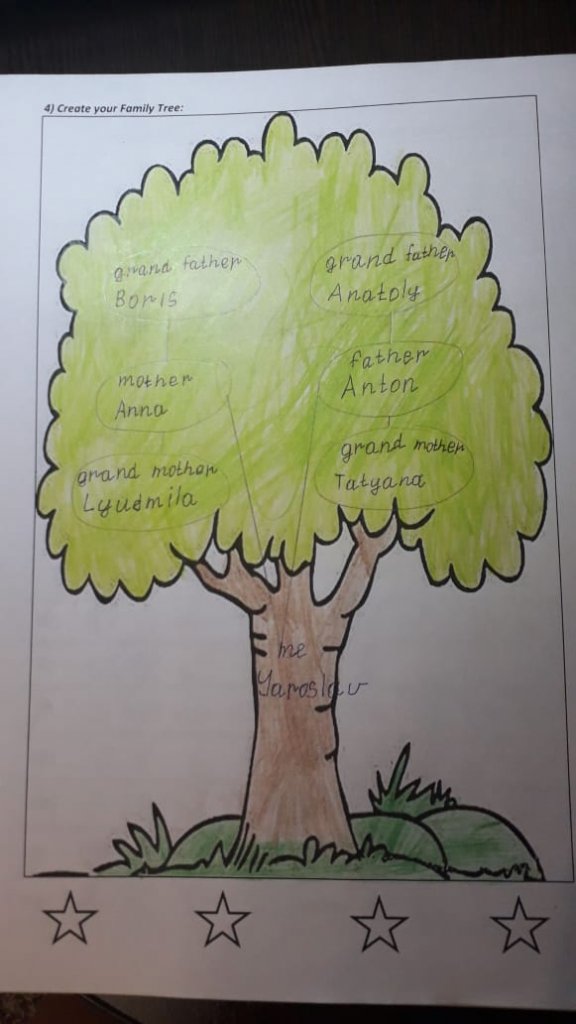 4) Create your Family Tree:
grand father
Boris
grand father
Anatoly
mother
Anna
father
Anton
grand mother
Lyudmila
grand mother
Tatyana
me
Yaroslav